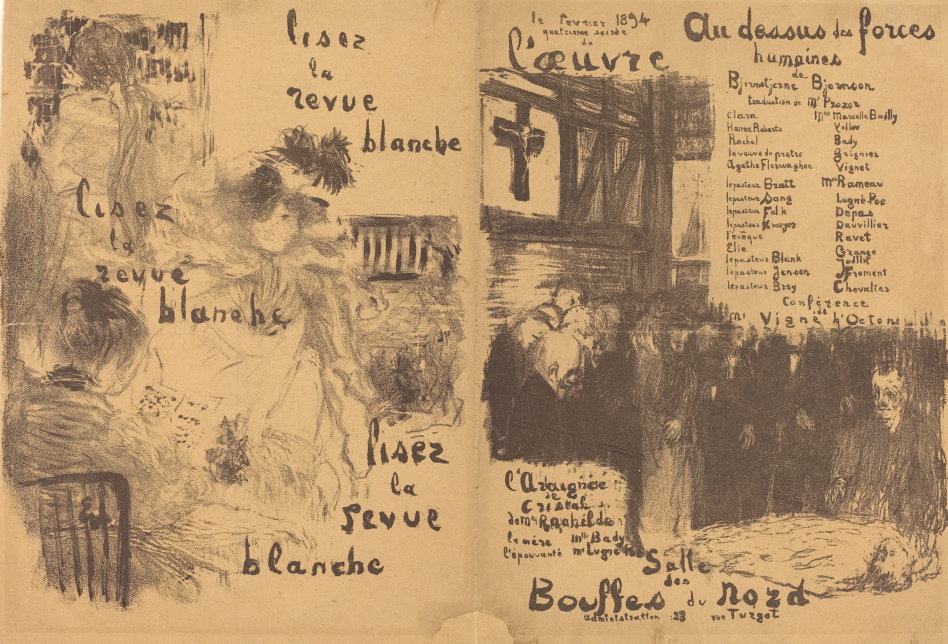 lisez
la
revue
blanche
lisez
la
revue
blanche
lisez
la
revue
blanche
le fevrier 1894
quatrieme soirée
de
l'œuvre
Au dessus des forces
humaines
de
Bjornstjerne Bjornson
traduction de Mr Prozor
Clara Mmes Marcelle Bailly
Hanna Roberts Yellov
Rachel Bady
la veuve du pretre Grignier
Agathe Florvaghen Vignet
le pasteur Bratt Mrs Rameau
le pasteur Sang Lugné Poe
le pasteur Falk Depas
le pasteur Krøyer Dauvillier
l'évêque Ravet
Elie Grange
le pasteur Blank Joslik
le pasteur Jensen Froment
le pasteur Brey Chevalier
Conférence
de
Mr Vigné d'Octon
l'Araignée
de
Cristal
de Mme Rachilde
la mère Mlle Bady
l'épouvanté Mr Lugné Poe
Salle
des
Bouffes du Nord
administration : 23 rue Turgot